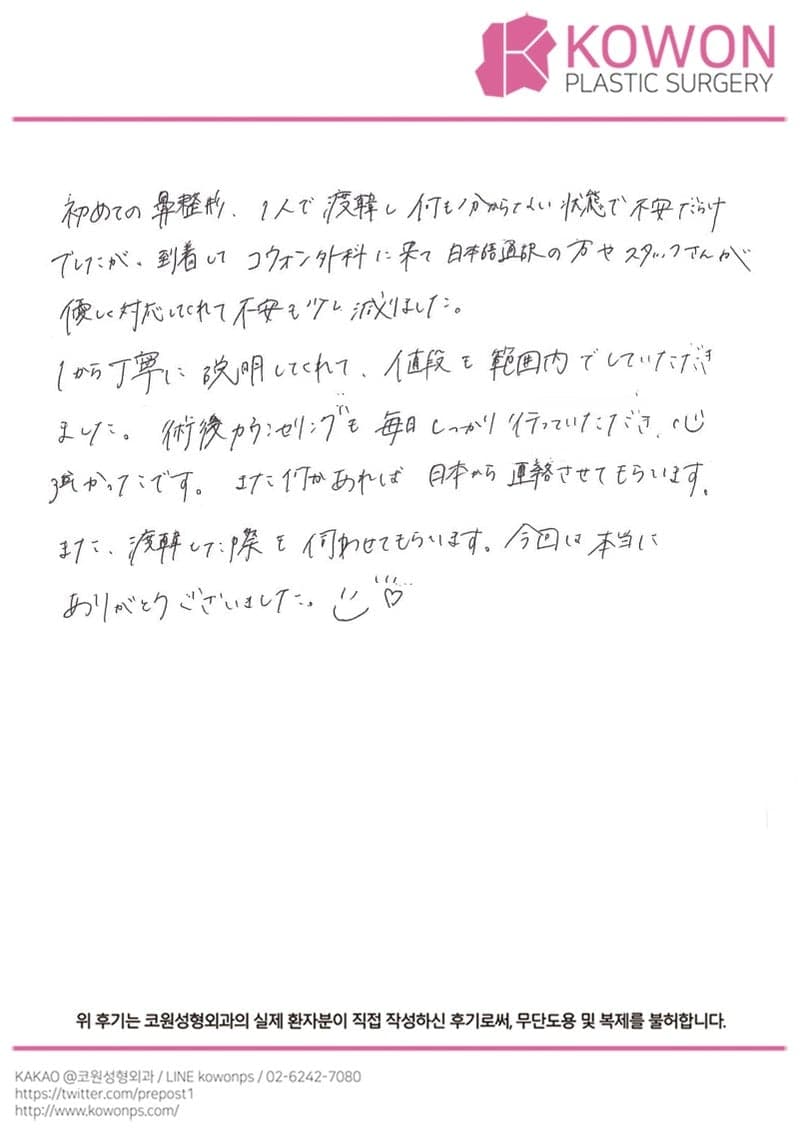 KOWON
PLASTIC SURGERY
初めての鼻整形、1人で渡韓し何も分からない状態で不安だらけ
でしたが、到着してコウォン外科に来て日本語通訳の方やスタッフさんが
優しく対応してくれて不安も少し減りました。
1から丁寧に説明してくれて、値段も範囲内でしていただき
ました。術後カウンセリングも毎日しっかり行っていただき、心
強かったです。また何かあれば日本から連絡させてもらいます。
また、渡韓した際も伺わせてもらいます。今回は本当に
ありがとうございました。
위 후기는 코원성형외과의 실제 환자분이 직접 작성하신 후기로써, 무단도용 및 복제를 불허합니다.
KAKAO @코원성형외과 / LINE kowonps / 02-6242-7080
https://twitter.com/prepost1
http://www.kowonps.com/